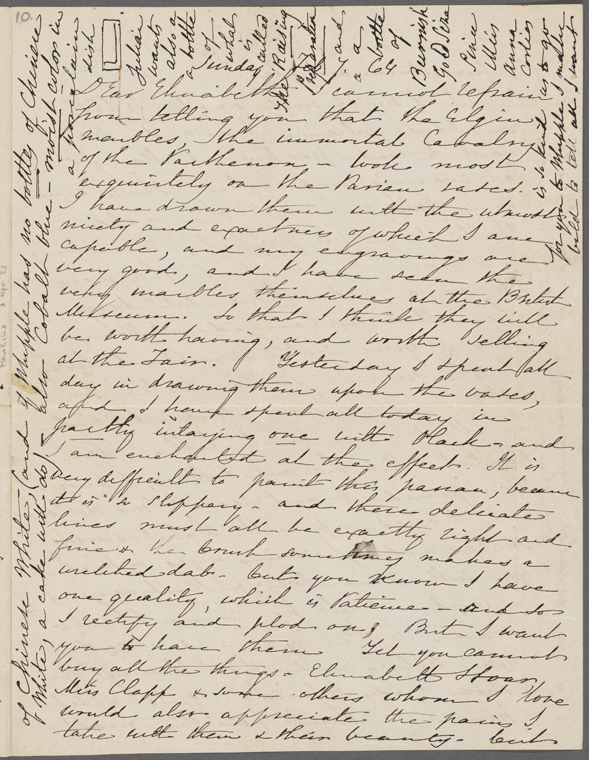 10.
Sunday, 64
Dear Elizabeth, I cannot refrain
from telling you that the Elgin
marbles, the immortal Cavalry
of the Parthenon - look most
exquisitely on the Parian vases.
I have drawn them with the utmost
nicety and exactness of which I am
capable, and my engravings are
very good, and I have seen the
very marbles themselves at the British
Museum. So that I think they will
be worth having, and worth selling
at the Fair. Yesterday I spent all
day in drawing them upon the vases,
and I have spent all today in
partly inlaying one with black - and
I am enchanted at the effect. It is
very difficult to paint this parian, because
it is so slippery - and these delicate
lines must all be exactly right and
fine & the brush sometimes makes a
wretched dab - but you know I have
one quality, which is Patience - and so
I rectify and plod on. But I want
you to have them Yet you cannot
buy all the things - Elizabeth Hoar,
Miss Clapp & some others whom I love
would also appreciate the pains I
take with them & their beauty - but
Julian
wants
also a
bottle
of
what
is
called
The Raising
Preparation
and
a
bottle
of
Burnish
Gold Size
Since
Miss
Anna
Corlies
is so kind as to go
for you to Whipple I make
bold to tell all I want
of Chinese White, (and if Whipple has no bottles of Chinese
White, a cake will do) - also Cobalt blue - moist color in
a porcelain
dish
Hawkins 3 Apr 83